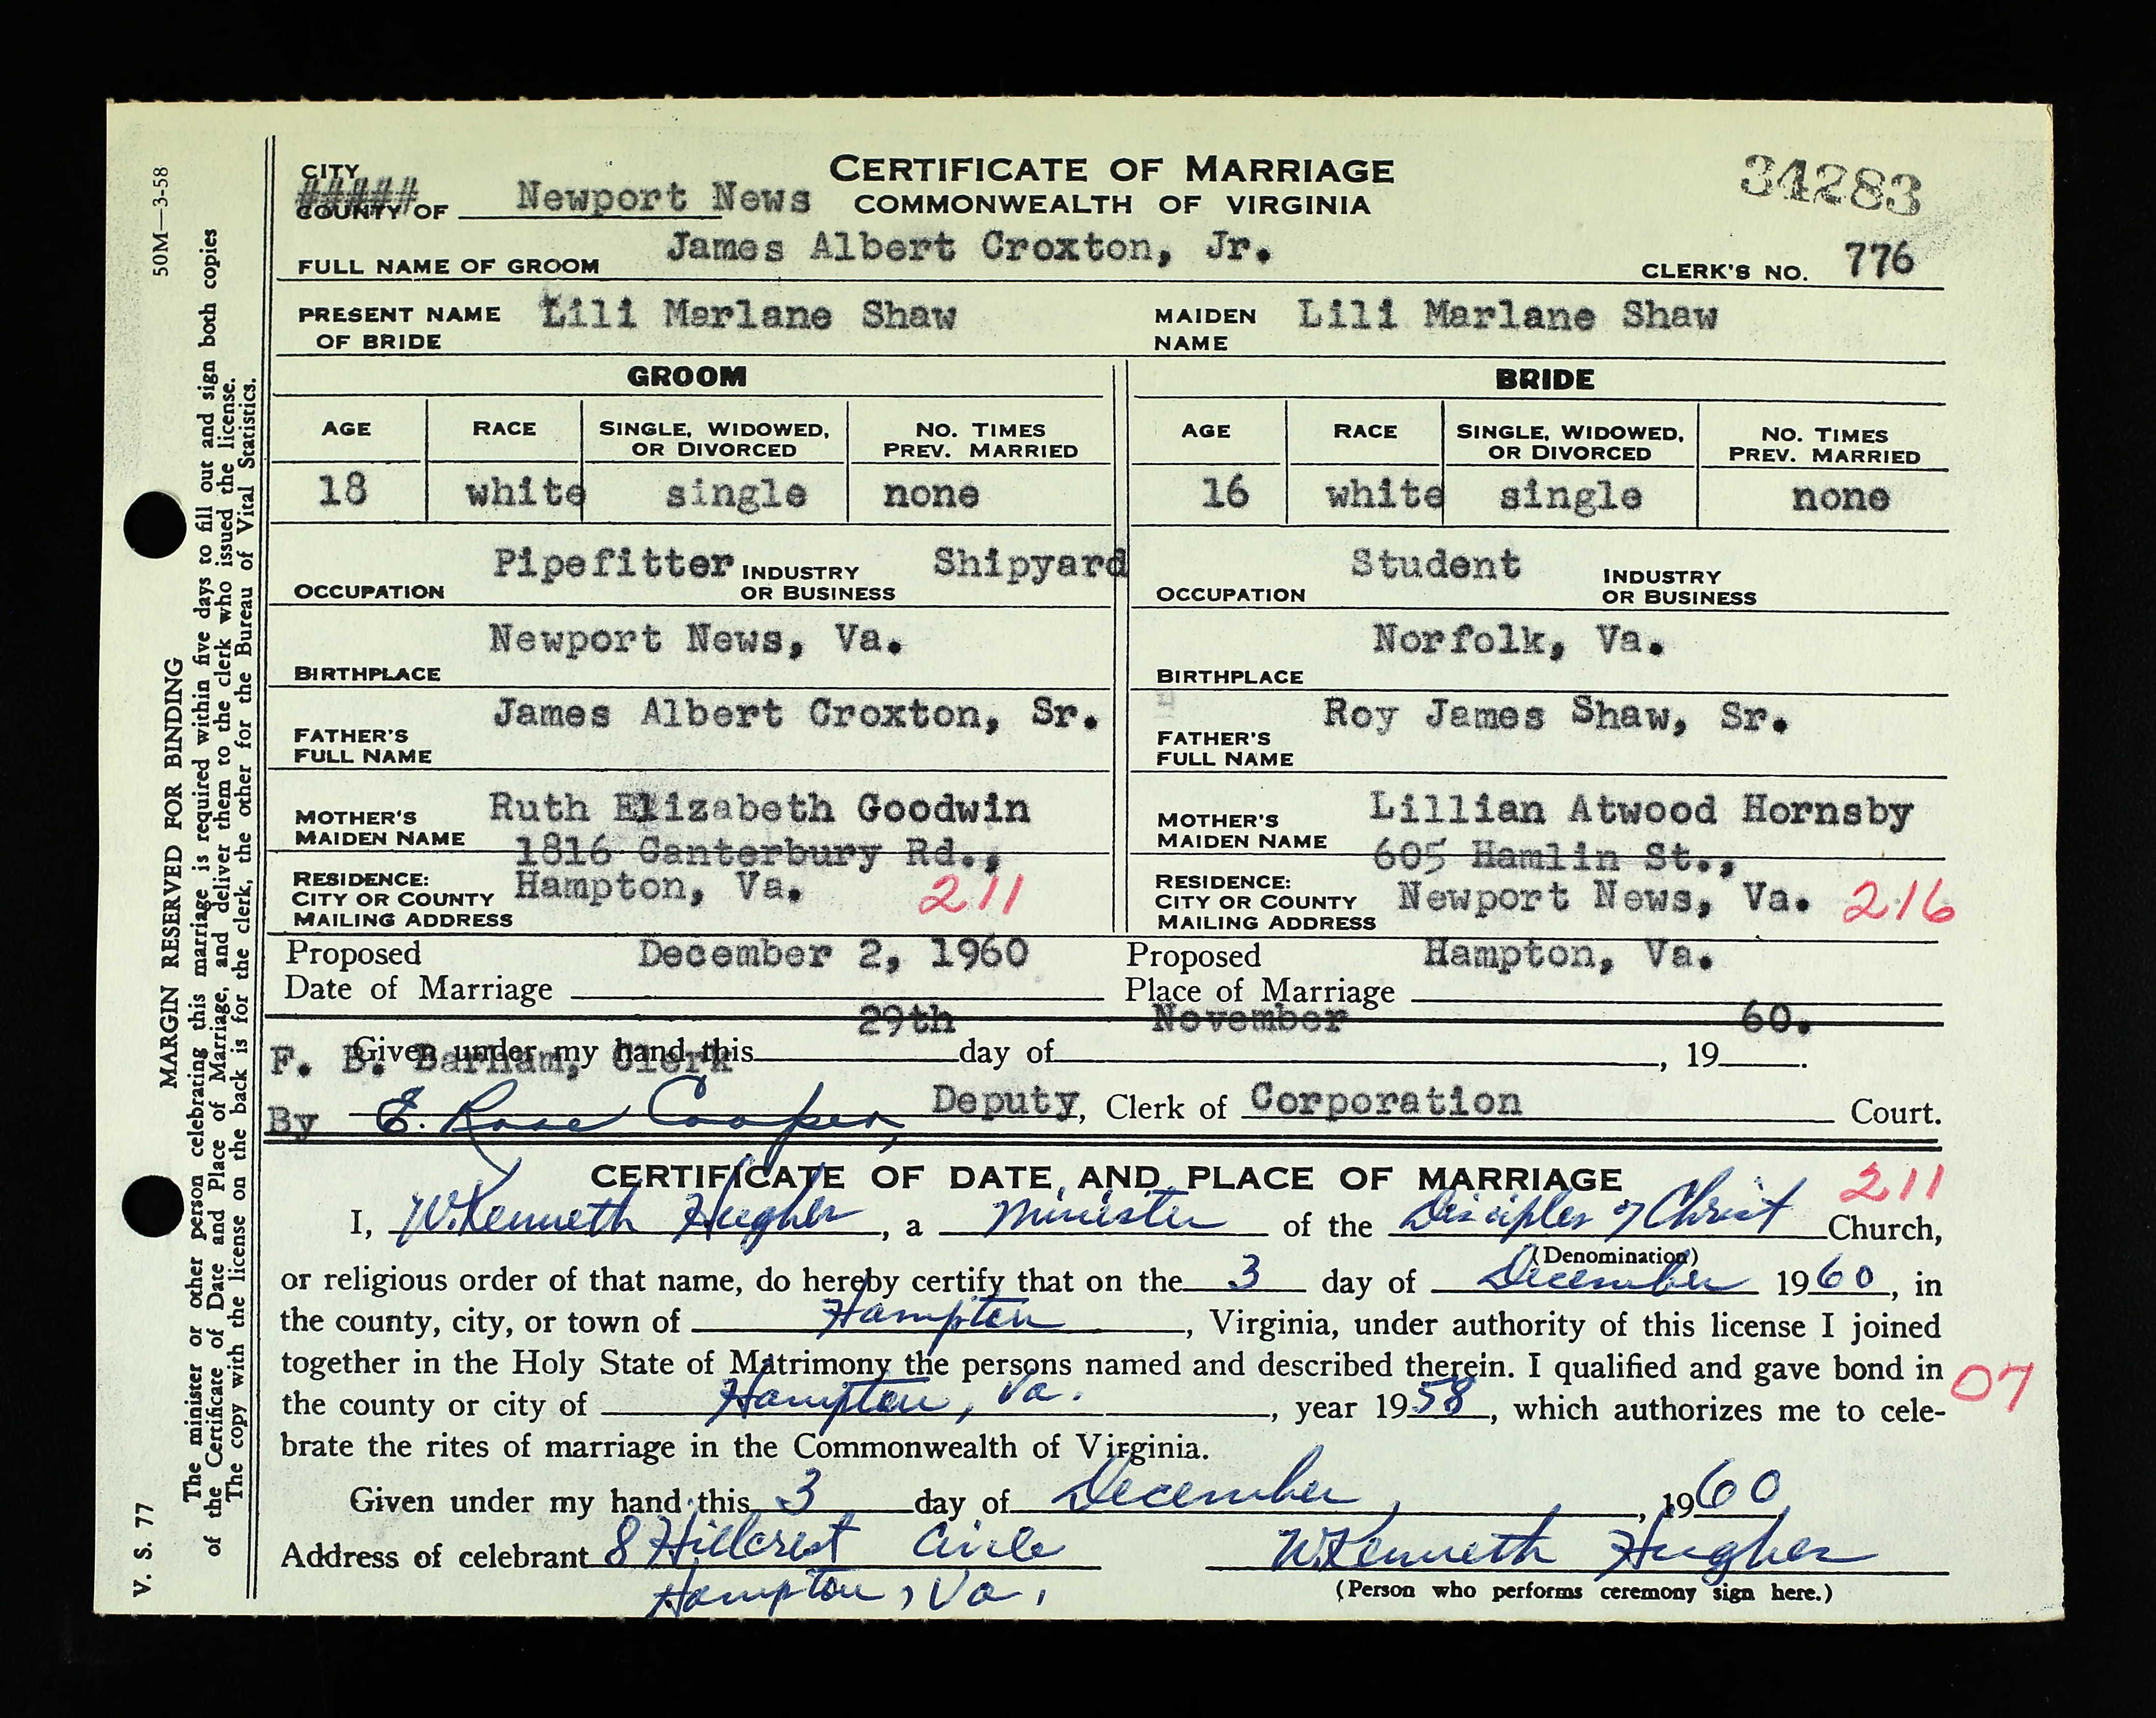 CERTIFICATE OF MARRIAGE
COMMONWEALTH OF VIRGINIA
34283
CITY
##### COUNTY OF Newport News
FULL NAME OF GROOM James Albert Croxton, Jr. CLERK'S NO. 776
PRESENT NAME OF BRIDE Lili Marlane Shaw MAIDEN NAME Lili Marlane Shaw
GROOM BRIDE
AGE RACE SINGLE, WIDOWED, OR DIVORCED NO. TIMES PREV. MARRIED AGE RACE SINGLE, WIDOWED, OR DIVORCED NO. TIMES PREV. MARRIED
18 white single none 16 white single none
OCCUPATION Pipefitter INDUSTRY OR BUSINESS Shipyard OCCUPATION Student INDUSTRY OR BUSINESS
BIRTHPLACE Newport News, Va. BIRTHPLACE Norfolk, Va.
FATHER'S FULL NAME James Albert Croxton, Sr. FATHER'S FULL NAME Roy James Shaw, Sr.
MOTHER'S MAIDEN NAME Ruth Elizabeth Goodwin MOTHER'S MAIDEN NAME Lillian Atwood Hornsby
RESIDENCE: CITY OR COUNTY MAILING ADDRESS 1816 Canterbury Rd., Hampton, Va. 211 RESIDENCE: CITY OR COUNTY MAILING ADDRESS 605 Hamlin St., Newport News, Va. 216
Proposed Date of Marriage December 2, 1960 Proposed Place of Marriage Hampton, Va.
Given under my hand this 29th day of November, 19 60.
F. B. Barham, Clerk
By E. Rose Cooper, Deputy, Clerk of Corporation Court.
CERTIFICATE OF DATE AND PLACE OF MARRIAGE 211
I, W. Kenneth Hughes, a Minister of the Disciples of Christ Church,
(Denomination)
or religious order of that name, do hereby certify that on the 3 day of December 1960, in
the county, city, or town of Hampton, Virginia, under authority of this license I joined
together in the Holy State of Matrimony the persons named and described therein. I qualified and gave bond in 07
the county or city of Hampton, Va., year 1958, which authorizes me to cele-
brate the rites of marriage in the Commonwealth of Virginia.
Given under my hand this 3 day of December, 1960
Address of celebrant 8 Hillcrest Circle W. Kenneth Hughes
Hampton, Va. (Person who performs ceremony sign here.)
V. S. 77 MARGIN RESERVED FOR BINDING 50M—3-58
The minister or other person celebrating this marriage is required within five days to fill out and sign both copies
of the Certificate of Date and Place of Marriage, and deliver them to the clerk who issued the license.
The copy with the license on the back is for the clerk, the other for the Bureau of Vital Statistics.